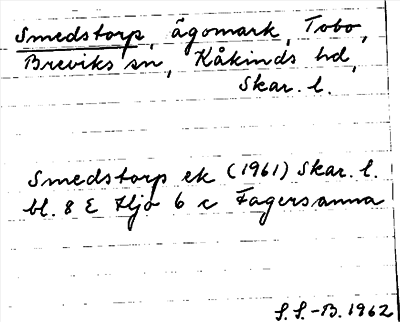 Smedstorp, ägomark, Tobo,
Breviks sn, Kåkinds hd,
Skar. l.
Smedstorp ek (1961) Skar. l.
bl. 8 E Hjo 6 c Fagersanna
S.S.-B. 1962